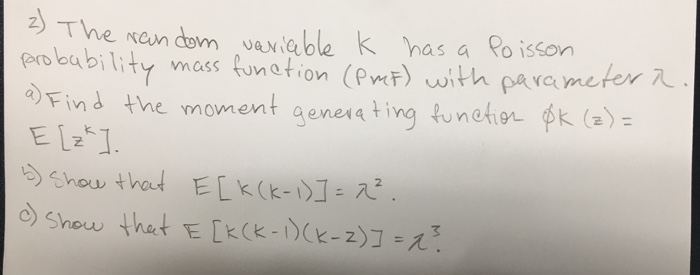 2) The random variable K has a Poisson
probability mass function (PMF) with parameter λ.
a) Find the moment generating function ϕK (z) =
E [z^k].
b) Show that E [K(K-1)] = λ².
c) Show that E [K(K-1)(K-2)] = λ³.